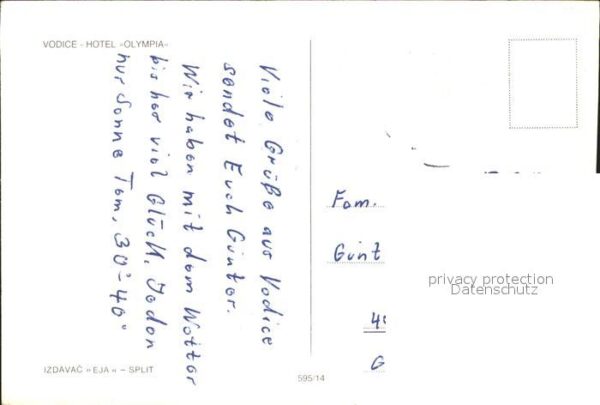 VODICE - HOTEL »OLYMPIA«
Viele Grüße aus Vodice
sendet Euch Günter.
Wir haben mit dem Wetter
bis her viel Glück. Jeden
nur Sonne Tem. 30°-40°
Fam.
Günt
privacy protection
Datenschutz
4
G
IZDAVAČ »EJA« – SPLIT
595/14